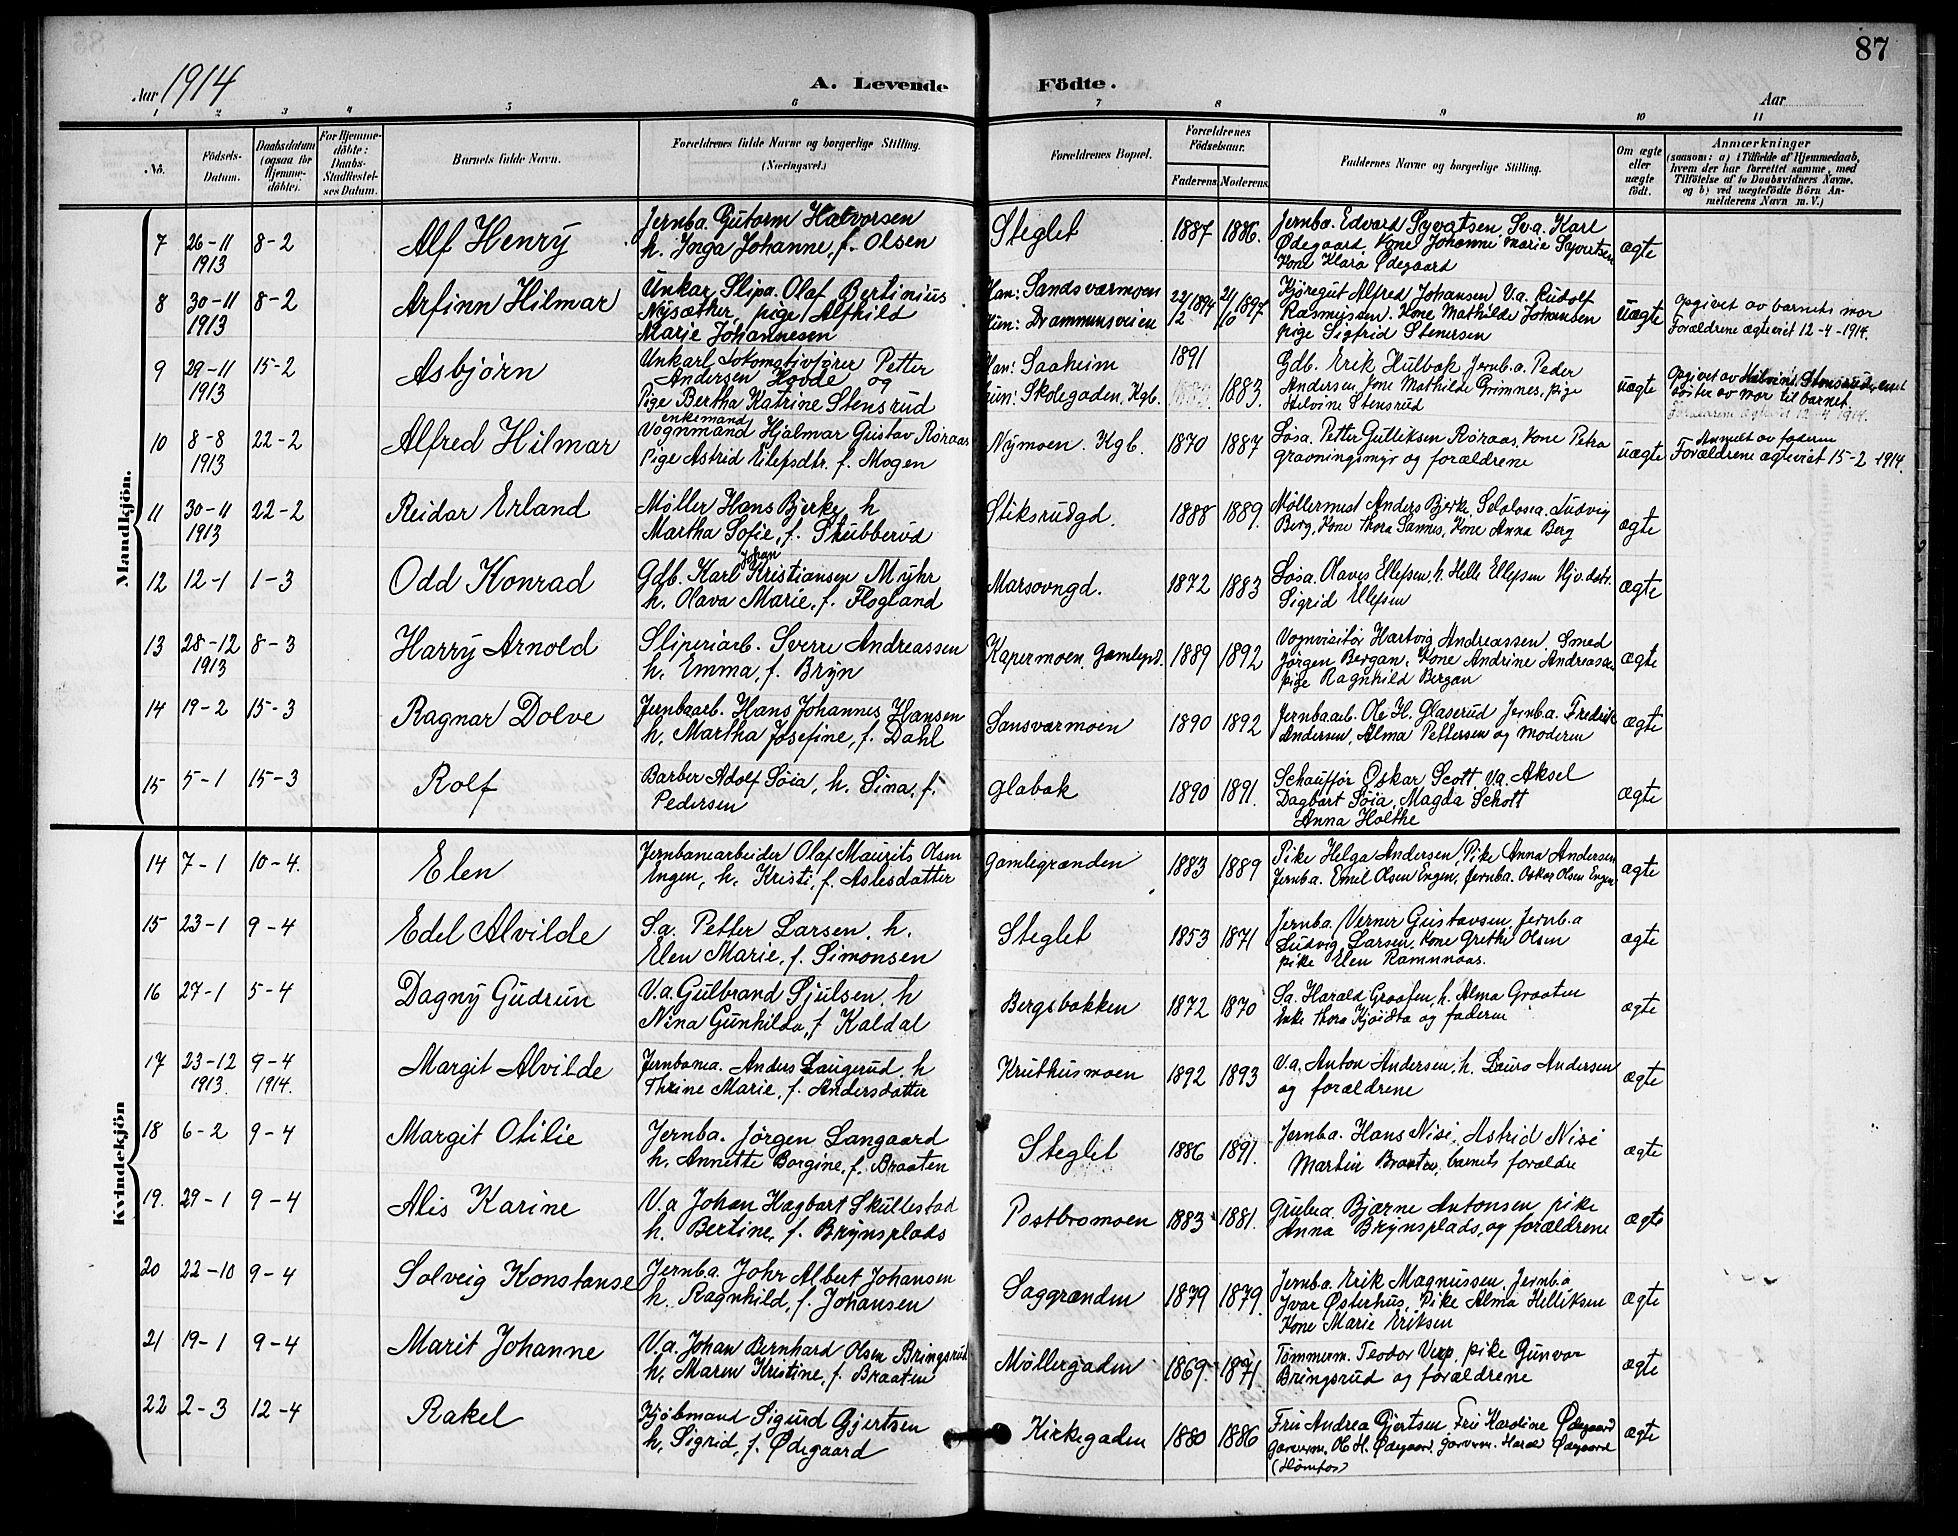 87
Aar 1914
A. Levende Födte.
Aar
1 2 3 4 5 6 7 8 9 10 11
No. Födsels-Datum. Daabsdatum (ogsaa för Hjemmedöbte). For Hjemmedöbte: Daabs-Stadfæstelses Datum. Barnets fulde Navn. Forældrenes fulde Navne og borgerlige Stilling. (Næringsvei.) Forældrenes Bopæl. Forældrenes Födselsaar. Faderens. Moderens. Faddernes Navne og borgerlige Stilling. Om ægte eller uægte födt. Anmærkninger (saasom: a) i Tilfælde af Hjemmedaab, hvem der har forrettet samme, med Tilföielse af to Daabsvidners Navne, og b) ved uægtefödte Börn Anmelderens Navn m. V.)
Mandkjön.
7 26-11 1913 8-2 Alf Henry
Jernba. Gutorm Halvorsen
h. Inga Johanne, f. Olsen
Steglet 1887 1886.
Jernba. Edvard Syvatsen, Sv.a. Karl
Ødegaard, Kone Johanne Marie Syvertsen
Kone Klara Ødegaard
ægte
8 30-11 1913 8-2 Arfinn Hilmar
Unkar, Slipa. Olaf Bertinius
Nysæther, pige Alfhild
Marie Johannesen
Han: Sandsværmoen
Hun: Drammensveien
22/2 1894 21/10 1897
Kjøregut Alfred Johansen V.a. Rudolf
Rasmussen. Kone Mathilde Johansen
pige Sigfrid Stenersen
uægte
Opgivet av barnets mor
Forældrene ægteviet 12-4-1914.
9 29-11 1913 15-2 Asbjørn
Unkarl Lokomotivfører Petter
Andersen Hovde og
Pige Bertha Katrine Stensrud
Han: Saaheim
Hun: Skolegaden, Kgb.
1891 1883.
Gdb. Erik Hulbak Jernb.a. Peder
Andersen, Kone Mathilde Grimnes, pige
Helvine Stensrud
uægte
Opgivet av Helvine Stensrud
søster av mor til barnet
Forældrene ægteviet 12-4 1914.
10 8-8 1913 22-2 Alfred Hilmar
enkemand
Vognmand Hjalmar Gustav Røraas
Pige Astrid Eilefsdtr. f. Mogen
Nymoen. Kgb. 1870 1887
Søsa. Petter Gulliksen Røraas, Kone Petra
Gravningsmyr og forældrene
uægte
Anmeldt av faderen
Forældrene ægteviet 15-2-1914.
11 30-11 1913 22-2 Reidar Erland
Møller Hans Bjerke, h
Martha Sofie, f. Skubberud
Stiksrudgd. 1888 1889.
Møllermest Anders Bjerke, Ludvig
Berg, Kone Thora Sannes, Kone Anna Berg
ægte
12 12-1 1-3 Odd Konrad
Johan
Gdb. Karl Kristiansen Myhr
h. Olava Marie, f. Flogland
Marsovngd. 1872 1883
Søsa. Olaves Ellefsen, h. Helle Ellefsen
Sigrid Ellefsen
ægte
13 28-12 1913 8-3 Harry Arnold
Sliperiarb. Sverre Andreassen
h. Emma, f. Bryn
Kapermoen. 1889 1892
Vognvisitør Hartvig Andreassen. Smed
Jørgen Bergan. Kone Andrine Andreasen
pige Ragnhild Bergan
ægte
14 19-2 15-3 Ragnar Dolve
Jernbaarb. Hans Johannes Hansen
h. Martha Josefine, f. Dahl
Sansværmoen 1890 1892
Jernbaarb. Ole H. Glaserud Jernb.a. Fredrik
Andersen, Alma Pettersen og moderen
ægte
15 5-1 15-3 Rolf
Barber Adolf Søia, h. Sina, f.
Pedersen
Glabak 1890 1891.
Schauffør Oskar Scott V.a. Aksel
Dagbart Søia, Magda Schott
Anna Holthe
ægte
Kvindekjön
14 7-1 10-4. Elen
Jernbanearbeider Olaf Maurits Olsen
Engen, h. Kristi, f. Aslesdatter
Gamlegrænden 1883 1889
Pike Helga Andersen, Pike Anna Andersen
Jernb.a. Emil Olsen Engen, Jernba. Oskar Olsen Engen
ægte
15 23-1 9-4 Edel Alvilde
S.a. Petter Larsen. h.
Elen Marie, f. Simonsen
Steglet 1853 1871
Jernb.a. Verner Gustavsen, Jernb.a
Ludvig Larsen, Kone Grethe Olsen
pike Elen Ramnnaas.
ægte
16 27-1 5-4 Dagny Gudrun
V.a. Gulbrand Sjulsen, h
Nina Gunhilda, f. Kaldal
Bergsbakken 1872 1870
Sa. Harald Graaten, h. Alma Graaten
Enke Thora og faderen
ægte
17 23-12 1913. 9-4 1914. Margit Alvilde
Jernbanea. Anders Laugerud. h
Thrine Marie, f. Andersdatter
Kruthusmoen 1892 1893
V.a. Anton Andersen, h. Laura Andersen
og forældrene
ægte
18 6-2 9-4 Margit Otilie
Jernba. Jørgen Langaard
h. Annette Borgine, f. Braaten
Steglet 1886 1891.
Jernb.a. Hans Nisi, Astrid Nisi
Martin Braaten, barnets forældre
ægte
19. 29-1 9-4 Alis Karine
V.a Johan Hagbart Skullestad
h. Bertine, f. Brynsplads
Postbromoen 1883 1881.
Grubea Bjarne Antonsen, pike
Anna Brynsplads, og forældrene
ægte
20 22-10 9-4 Solveig Konstanse
Jernb.a. Johr Albert Johansen
h. Ragnhild, f. Johansen
Saggrænden 1879 1879.
Jernb.a Erik Magnussen, Jernb.a
Ivar Østerhus, Pike Alma Helliksen
Kone Marie Eriksen
ægte
21 19-1 9-4 Marit Johanne
V.a. Johan Bernhard Olsen Bringsrud
h. Maren Kristine, f. Braaten
Møllergaden 1869. 1871.
Tømmerm. Teodor Verp, pike Gunvor
Bringsrud og forældrene
ægte
22 2-3 12-4 Rakel
Kjøbmand Sigurd Gjertsen
h. Sigrid, f. Ødegaard
Kirkegaden 1880 1886
Fru Andrea Gjertsen Fru Karoline Ødegaard
Garverm. Ole H. Ødegaard, garverm. Harald Ødegaard
(Hønefos)
ægte